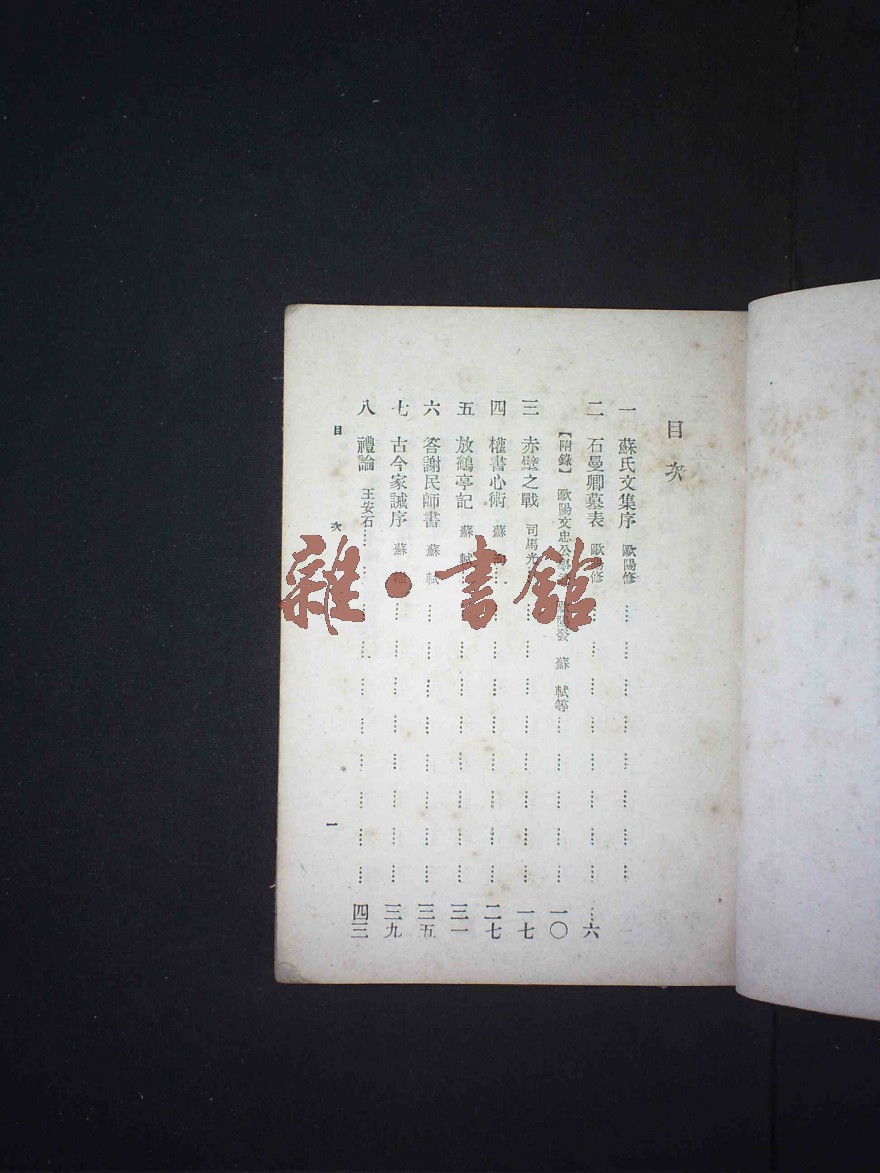 目 次
一 蘇氏文集序 歐陽修 一
二 石曼卿墓表 歐陽修 六
【附錄】 歐陽文忠公 歐陽發 蘇 軾等 一〇
三 赤壁之戰 司馬光 一七
四 權書心術 蘇 洵 二七
五 放鶴亭記 蘇 軾 三一
六 答謝民師書 蘇 軾 三五
七 古今家誡序 蘇 轍 三九
八 禮論 王安石 四三
目 次 一
雜·書館